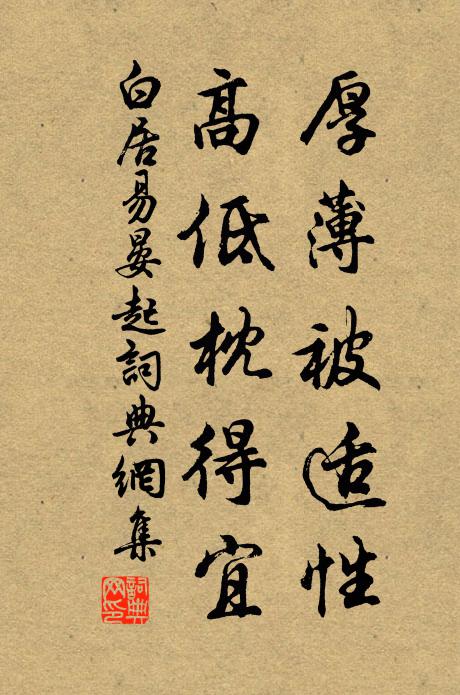 厚薄被适性
高低枕得宜
白居易晏起詞典網集
詞典
网印